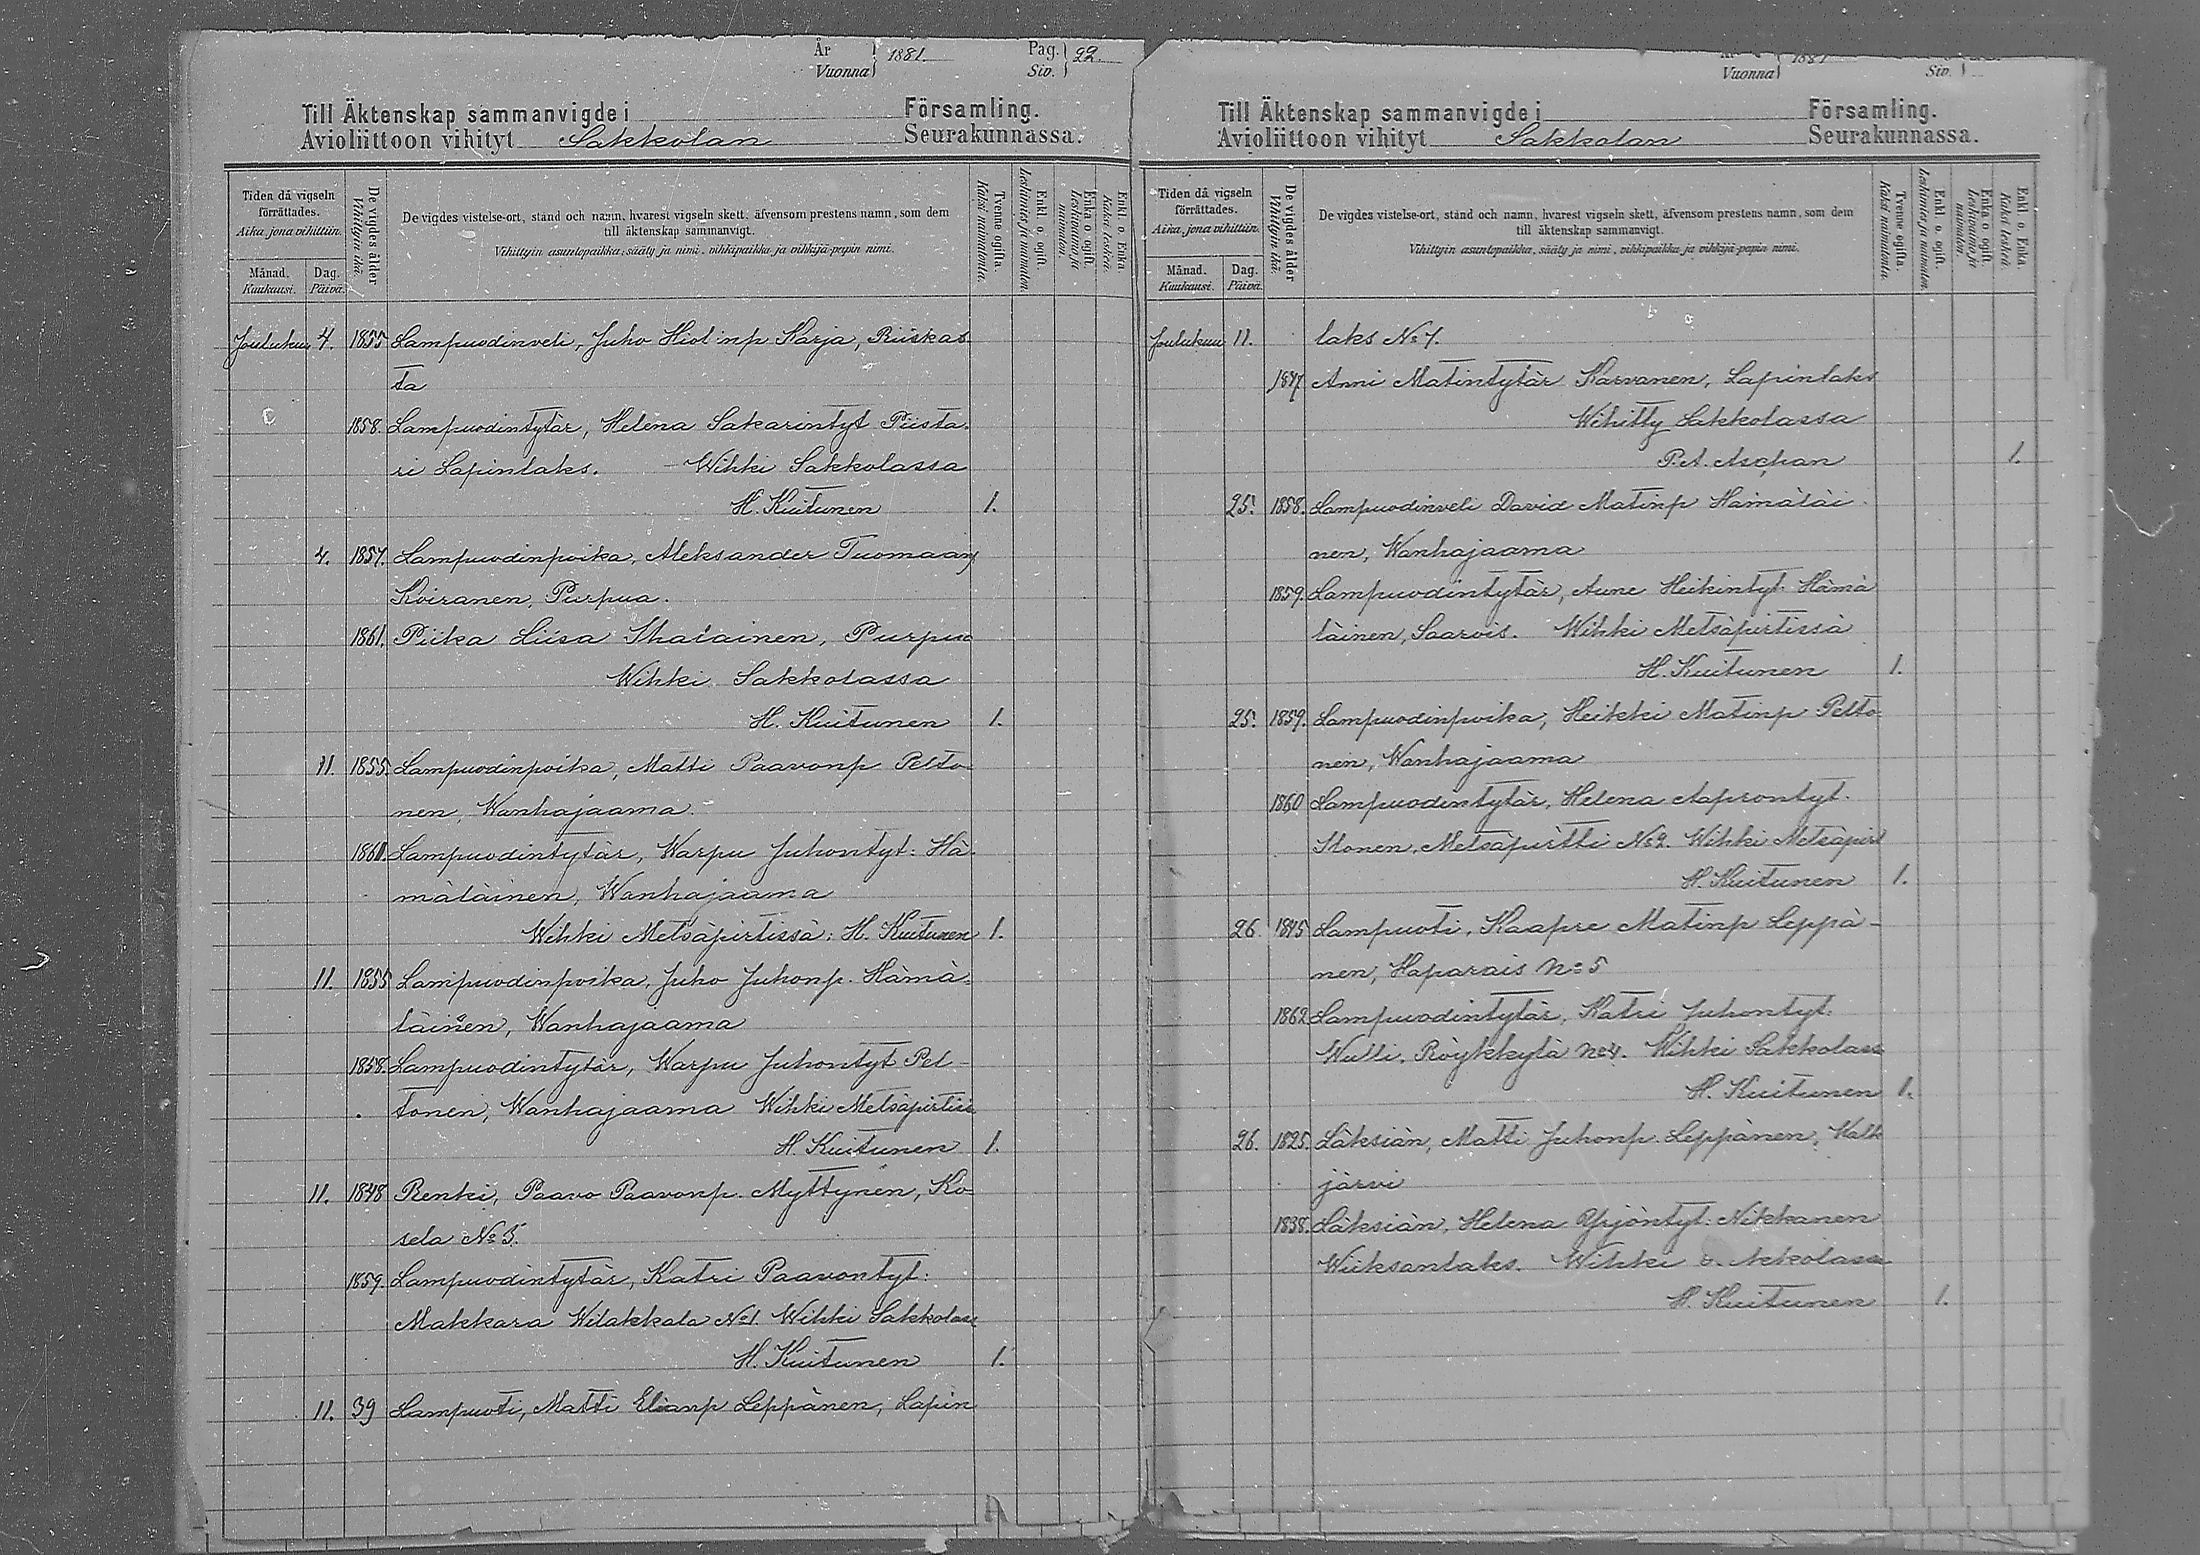 År Vuonna 1881. Pag. Siv. 22.
Till Äktenskap sammanvigde i Församling.
Avioliittoon vihityt Sakkolan Seurakunnassa.
Tiden då vigseln förrättades.
Aika, jona vihittiin.
Månad. Kuukausi.
Dag. Päivä.
De vigdes ålder
Vihittyin ikä.
De vigdes vistelse-ort, stånd och namn, hvarest vigseln skett, äfvensom prestens namn, som dem
till äktenskap sammanvigt.
Vihittyin asuntopaikka, sääty ja nimi, vihkipaikka ja vihkijä-papin nimi.
Tvenne ogifta. Kaksi naimatonta.
Enkl. o. ogift. Leskimies ja naimaton.
Enka o ogift. Leskivaimo ja naimaton.
Enkl. o. Enka. Kaksi leskeä.
Joulukuu 4. 1855 Lampuodinveli, Juho Hiol:np Karja, Riiskas
ta
1858. Lampuodintytär, Helena Sakarintyt Piista-
ri Lapinlaks. - Wihki Sakkolassa
H. Kuitunen 1.
4. 1857. Lampuodinpoika, Aleksander Tuomaanp
Koiranen, Purpua.
1861. Piika Liisa Ihalainen, Purpua
Wihki Sakkolassa
H. Kuitunen 1.
11. 1855. Lampuodinpoika, Matti Paavonp Pelto-
nen, Wanhajaama.
1860. Lampuodintytär, Warpu Juhontyt: Hä-
mäläinen, Wanhajaama
Wihki Metsäpirtissä: H. Kuitunen 1.
11. 1855 Lampuodinpoika, Juho Juhonp. Hämä-
läinen, Wanhajaama
1858. Lampuodintytär, Warpu Juhontyt Pel-
tonen, Wanhajaama Wihki Metsäpirtiss
H. Kuitunen 1.
11. 1848 Renki, Paavo Paavonp. Myttynen, Ko-
sela No 5.
1859. Lampuodintytär, Katri Paavontyt:
Makkara Wilakkala No 1. Wihki Sakkolass
H. Kuitunen 1.
11. 39 Lampuoti, Matti Elianp Leppänen, Lapin
Vuonna 1881 Siv.
Till Äktenskap sammanvigde i Församling.
Avioliittoon vihityt Sakkolan Seurakunnassa.
Tiden då vigseln förrättades.
Aika, jona vihittiin.
Månad. Kuukausi.
Dag. Päivä.
De vigdes ålder
Vihittyin ikä.
De vigdes vistelse-ort, stånd och namn, hvarest vigseln skett, äfvensom prestens namn, som dem
till äktenskap sammanvigt.
Vihittyin asuntopaikka, sääty ja nimi, vihkipaikka ja vihkijä-papin nimi.
Tvenne ogifta. Kaksi naimatonta.
Enkl. o. ogift. Leskimies ja naimaton.
Enka o ogift. Leskivaimo ja naimaton.
Enkl o. Enka. Kaksi leskeä.
Joulukuu 11. laks No 7.
1847 Anni Matintytär Karvanen, Lapinlaks
Wihitty Sakkolassa
P. A. Aschan 1.
25. 1858. Lampuodinveli David Matinp Hämäläi-
nen, Wanhajaama
1859. Lampuodintytär, Aune Heikintyt. Hämä
läinen, Saarois. Wihki Metsäpirtissä
H. Kuitunen 1.
25. 1859. Lampuodinpoika, Heikki Matinp Pelto
nen, Wanhajaama
1860 Lampuodintytär, Helena Aaprontyt.
Ikonen, Metsäpirtti No 2. Wihki Metsäpirt
H. Kuitunen 1.
26. 1845 Lampuoti, Kaapre Matinp Leppä-
nen, Haparais No 5
1862 Lampuodintytär, Katri Juhontyt:
Wulli, Röykkylä No 4. Wihki Sakkolass
H. Kuitunen 1.
26. 1825. Läksiän, Matti Juhonp. Leppänen, Walk
järvi
1838. Läksiän, Helena Yrjöntyt: Nikkanen
Wiiksanlaks. Wihki Sakkolass
H. Kuitunen 1.